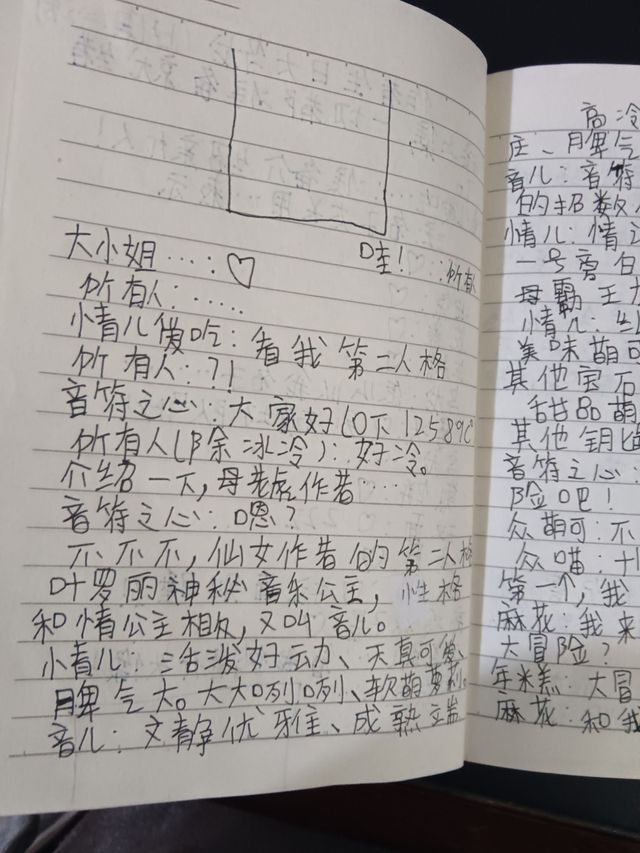 哇！
大小姐……：♡
所有人：……
所有
情儿傻吃：看我第二人格
所有人：?!
音符之心：大家好(0下12589℃
所有人(除冰冷)：好冷。
介绍一下，母老虎作者……
音符之心：嗯？
不不不，仙女作者的第二人格
叶罗丽神秘音乐公主，性格
和情公主相反，又叫音儿。
小情儿：活泼好动、天真可爱、
脾气大。大大咧咧、软萌萝莉。
音儿：文静优雅、成熟端
高冷
庄、脾气
音儿：音符
的招数
情儿：情之
一号旁白
母霸王
情儿：
美味萌可
其他宝石
甜品萌
其他钥匙
音符之心：
险吧！
众萌可：不
众喵：
第一个，我
麻花：我来
大冒险？
年米糕：大冒
麻花：和我